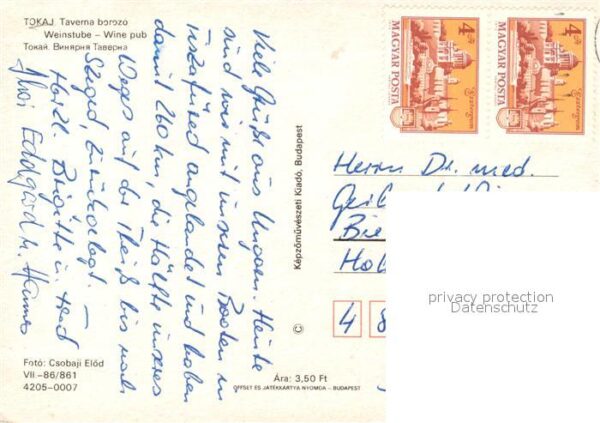 TOKAJ Taverna borozó
Weinstube – Wine pub
Токай. Винярня Таверна
Viele Grüße aus Ungarn. Heute
sind wir mit unseren Booten in
Tiszafüred angelandet und haben
damit 260 km, die Hälfte unseres
Weges auf der Theiß bis nach
Szeged, zurückgelegt. –
Herzl. Brigitte u. Fred
Eddgard u. Hannes
Fotó: Csobaji Előd
VII.-86/861
4205-0007
Képzőművészeti Kiadó, Budapest
©
Ára: 3,50 Ft
OFFSET ÉS JÁTÉKKÁRTYA NYOMDA – BUDAPEST
4 Ft
MAGYAR POSTA
Esztergom
4 Ft
MAGYAR POSTA
Esztergom
Herrn Dr. med.
4 8
privacy protection
Datenschutz